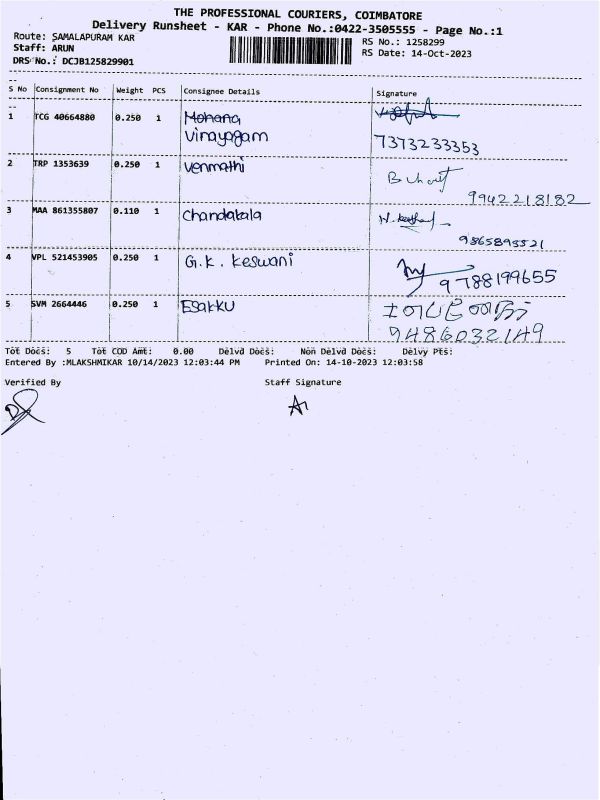 THE PROFESSIONAL COURIERS, COIMBATORE
Delivery Runsheet - KAR - Phone No.:0422-3505555 - Page No.:1
Route: SAMALAPURAM KAR
RS No.: 1258299
Staff: ARUN
RS Date: 14-Oct-2023
DRS No.: DCJB125829901
S No Consignment No Weight PCS Consignee Details Signature
1 TCG 40664880 0.250 1 Mohana
Vinayagam 7373233353
2 TRP 1353639 0.250 1 Venmathi
9942218182
3 MAA 861355807 0.110 1 Chandakala
9865895521
4 VPL 521453905 0.250 1 G.K. Keswani
9788199655
5 SVM 2664446 0.250 1 Esakku
9486032149
Tot Docs: 5 Tot COD Amt: 0.00 Delvd Docs: Non Delvd Docs: Delvy Pts:
Entered By :MLAKSHMIKAR 10/14/2023 12:03:44 PM Printed On: 14-10-2023 12:03:58
Verified By Staff Signature